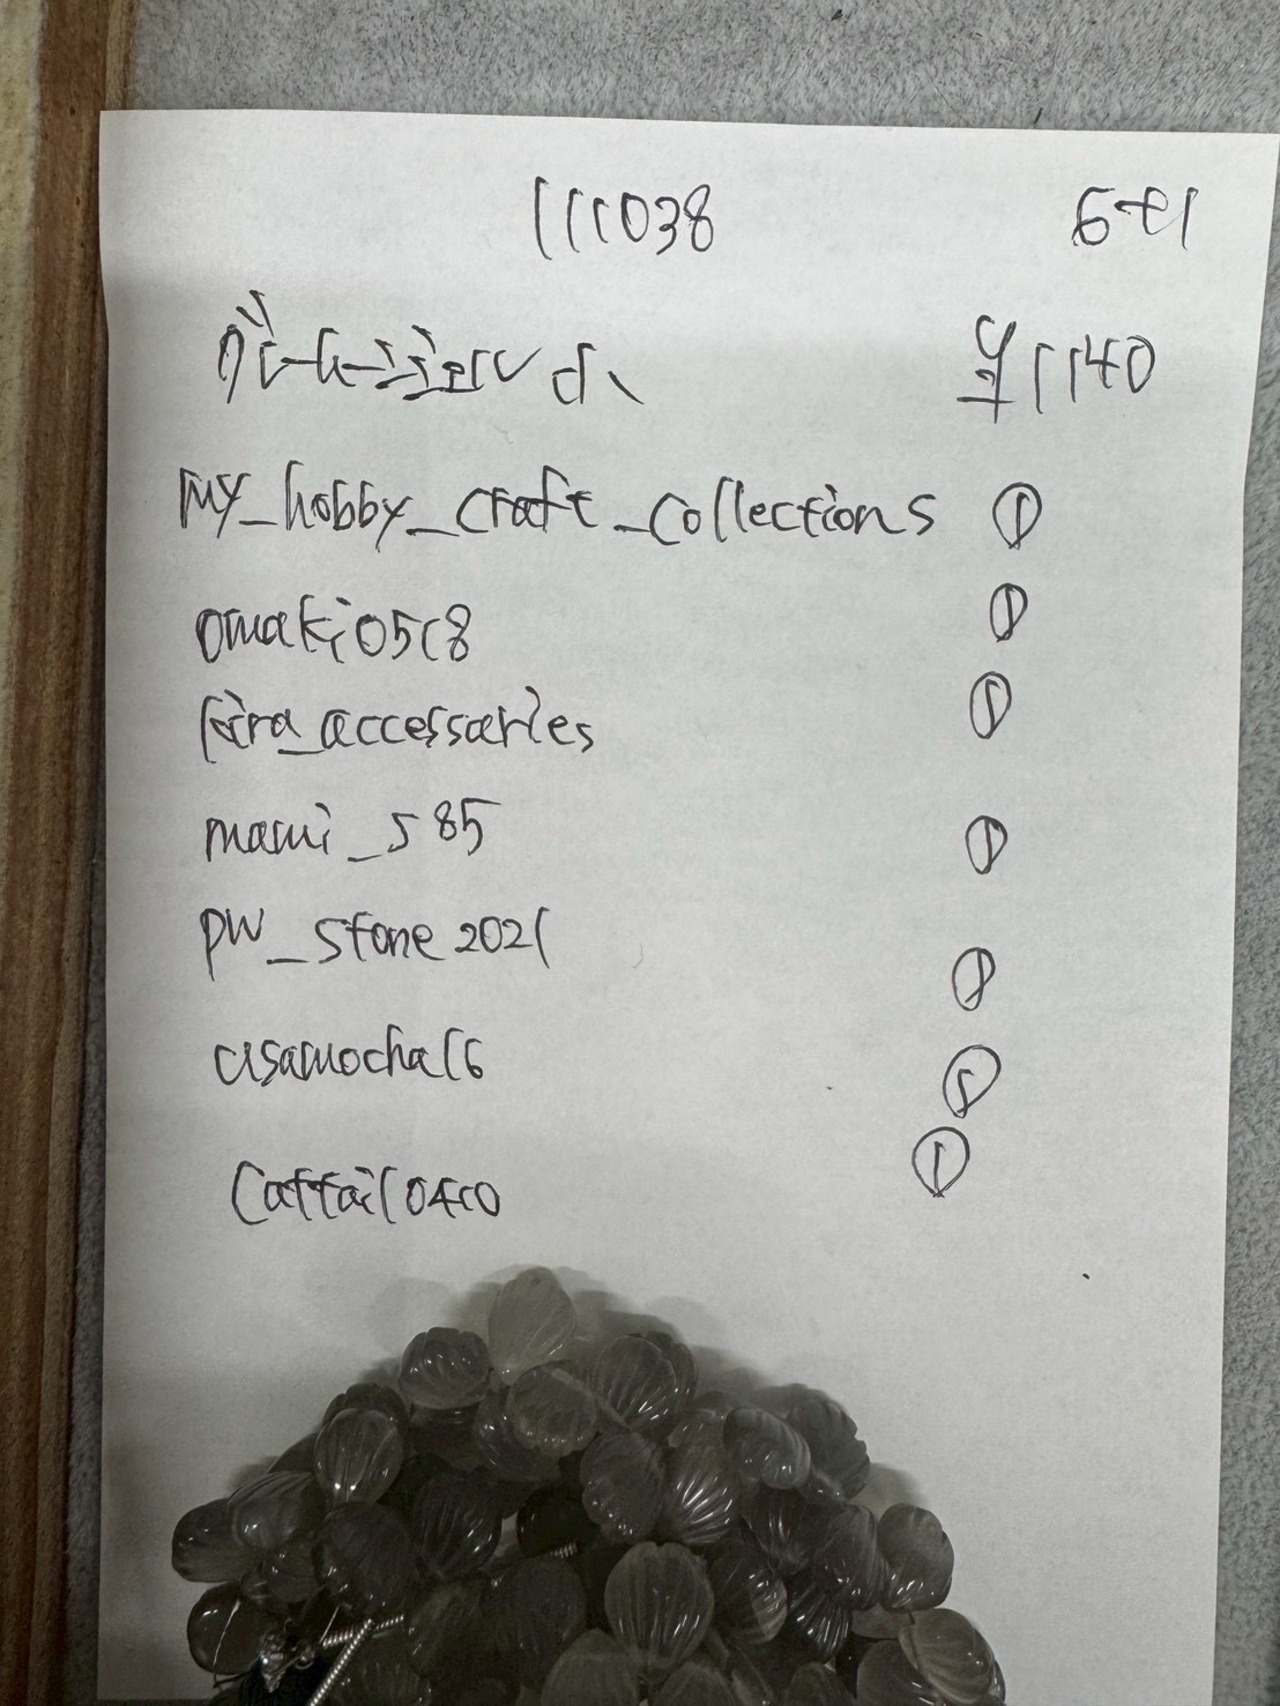 111038
¥1140
my_hobby_craft_collections ①
omaki0518 ①
kira_accessaries ①
mami_s85 ①
pw_stone2021 ①
usamocha16
cattail0410 ①